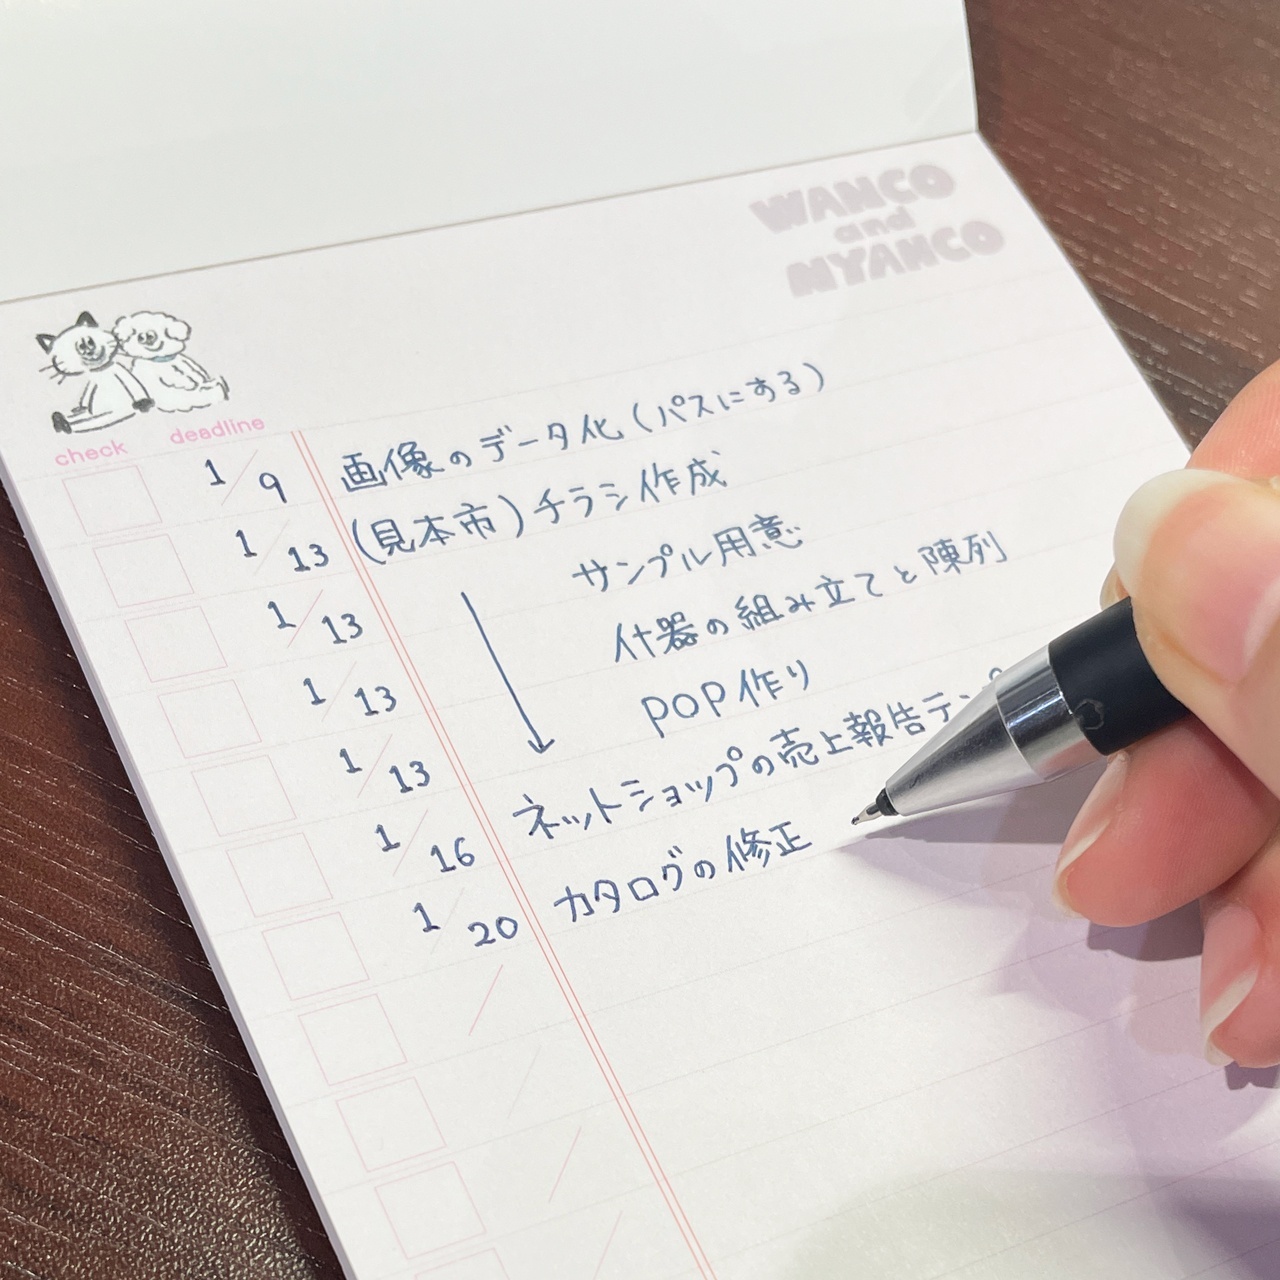 WANCO
and
NYANCO
check deadline
1/9 画像のデータ化(パスにある)
1/13 (見本市)チラシ作成
1/13 サンプル用意
1/13 什器の組み立てと陳列
1/13 POP作り
1/16 ネットショップの売上報告
1/20 カタログの修正